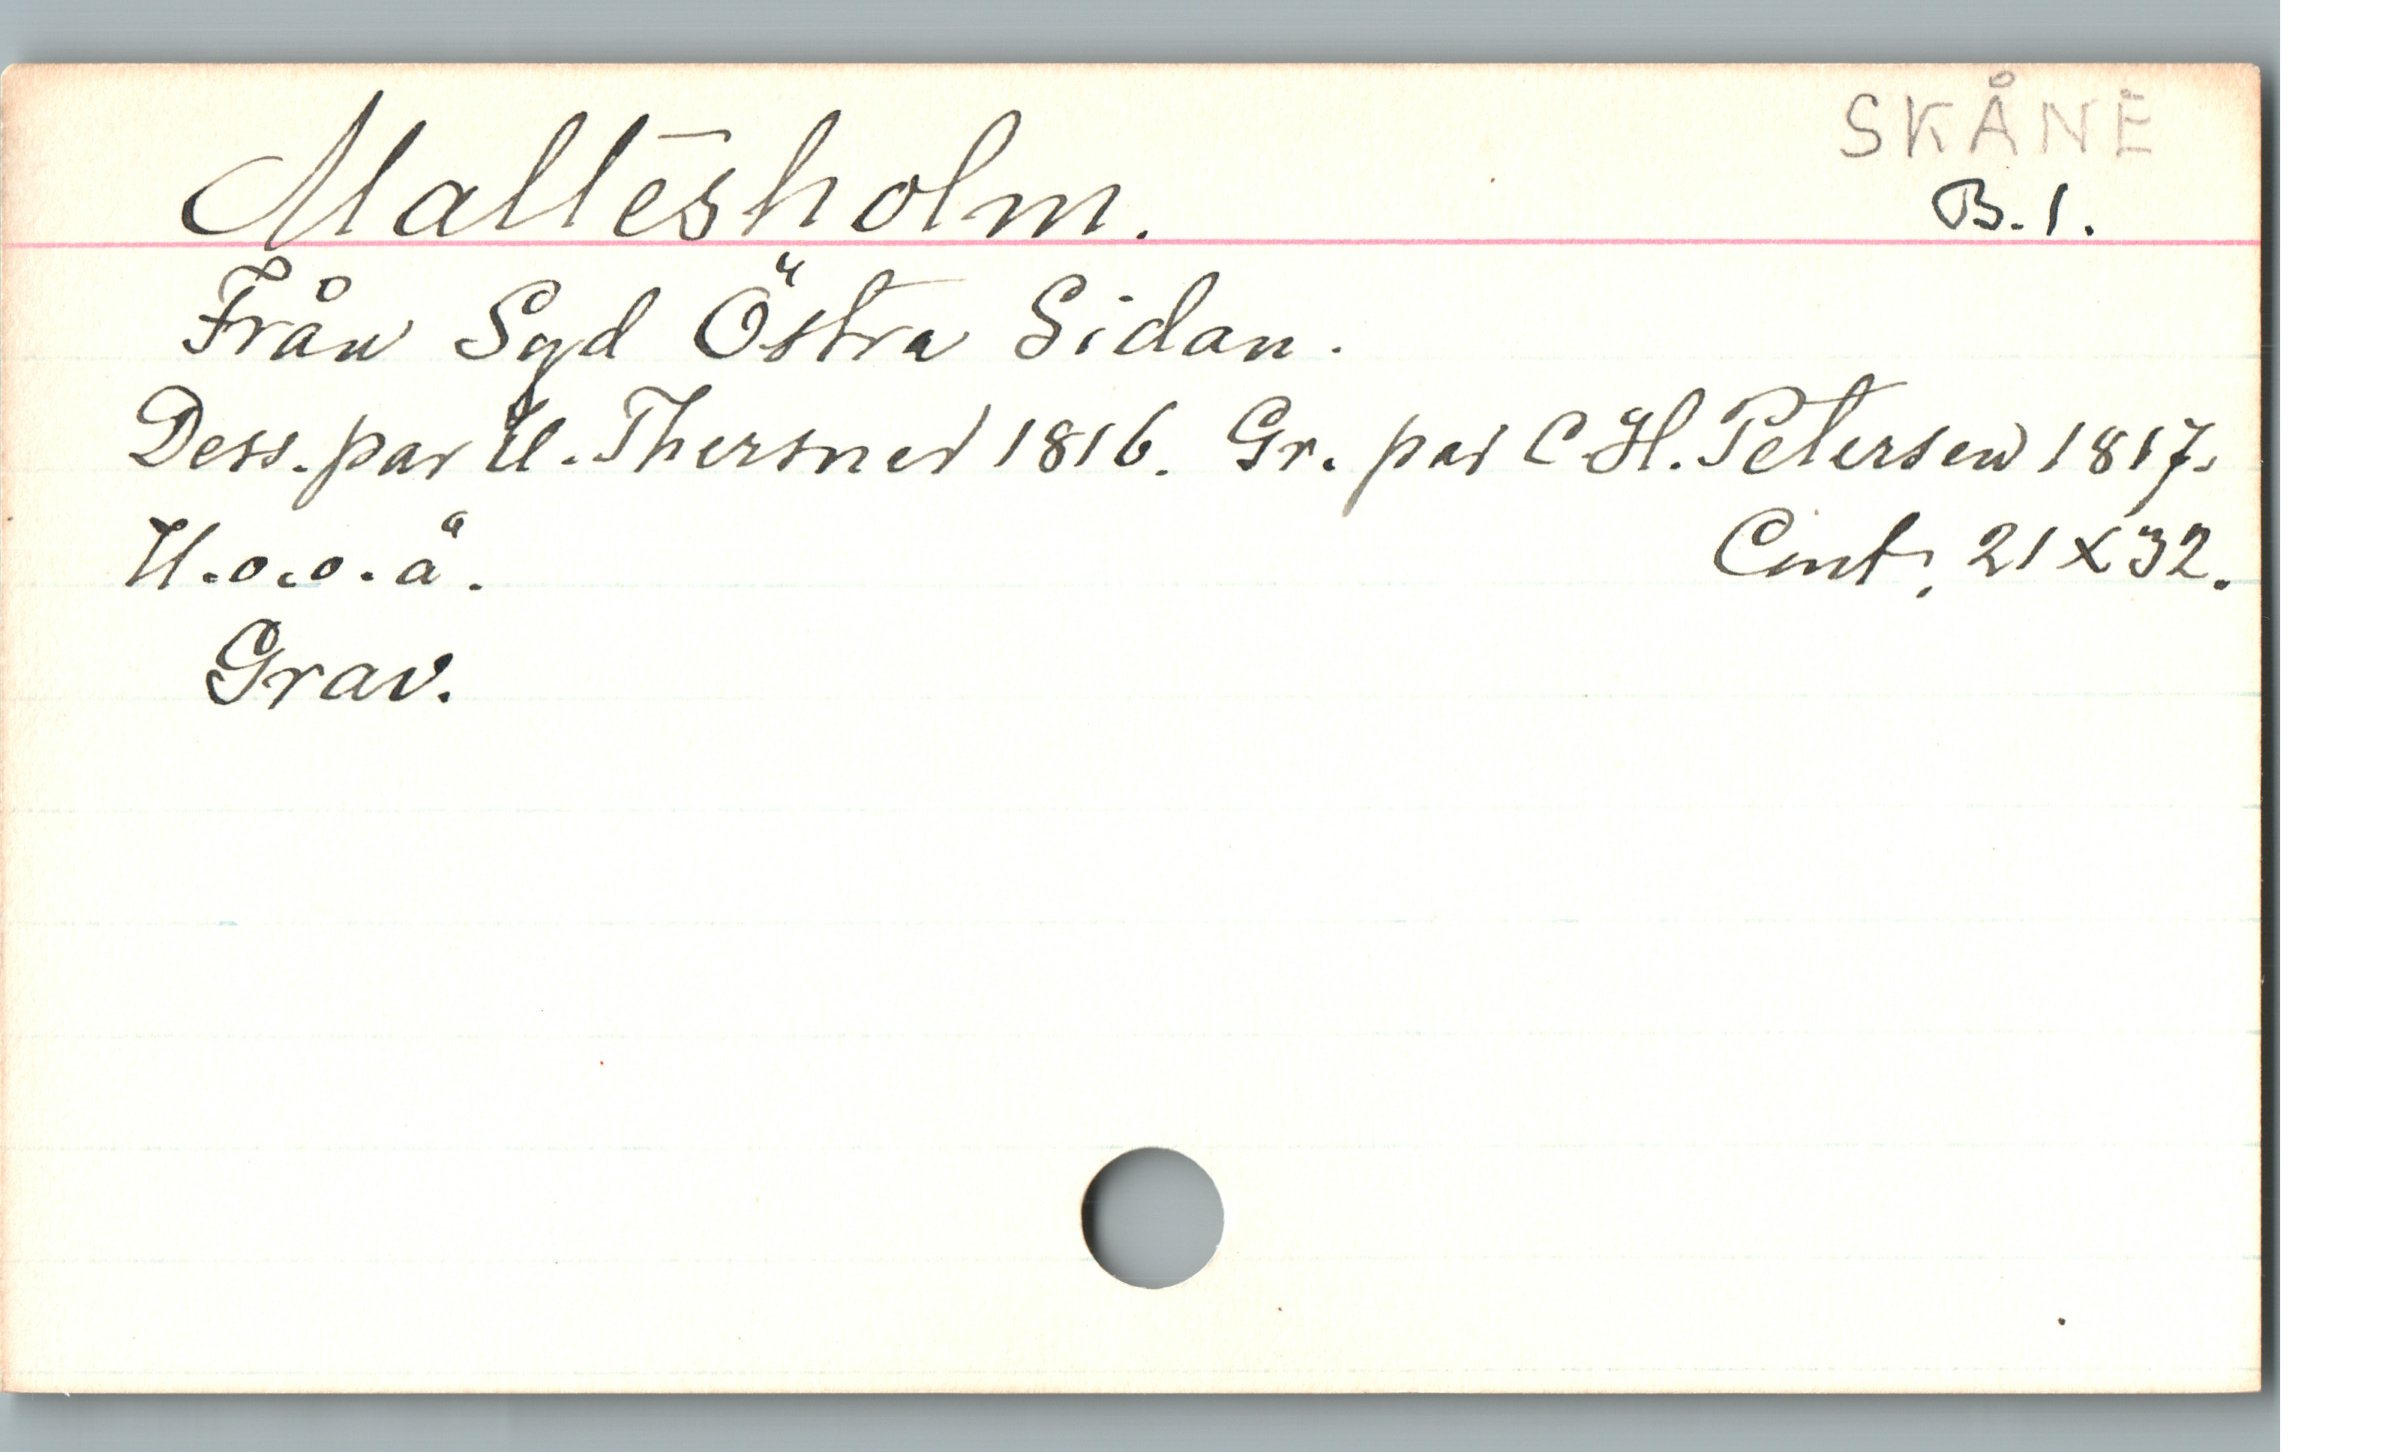 SKÅNE
Maltesholm.
B. 1.
Från Syd Östra Sidan.
Dess. par U. Thersner 1816. Gr. par C. H. Petersen 1817.
U. o. o. ä. Cent. 21 x 32.
Grav.